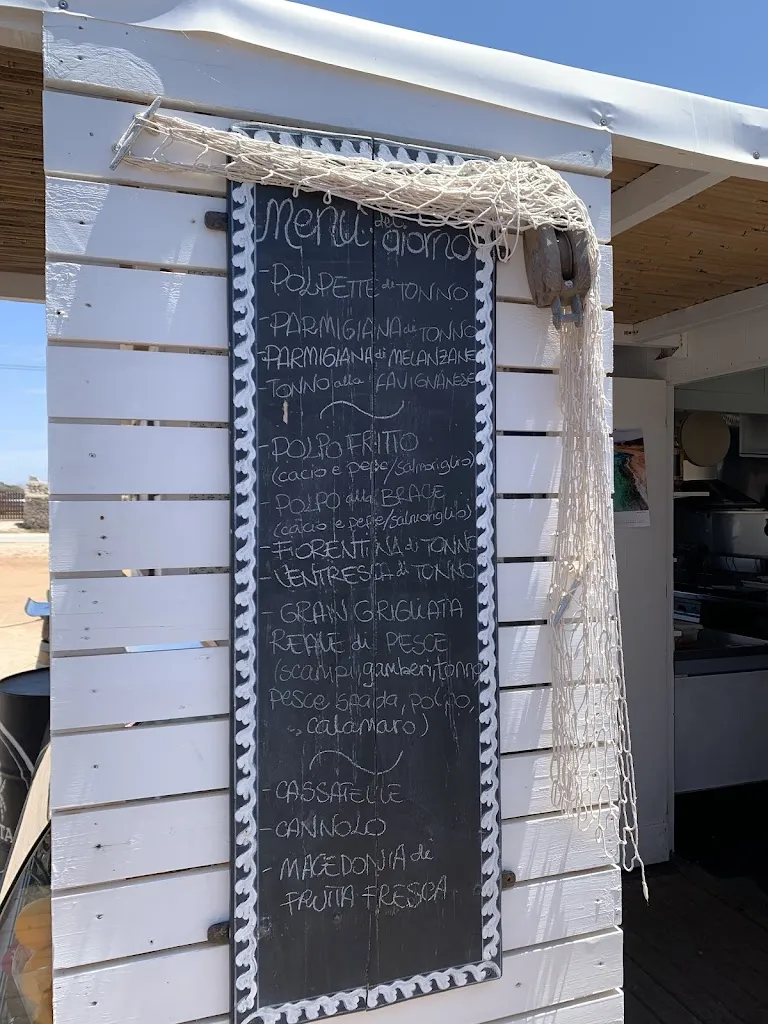 Menù del giorno
- POLPETTE di TONNO
- PARMIGIANA di TONNO
- PARMIGIANA di MELANZANE
- TONNO alla FAVIGNANESE
- POLPO FRITTO
(cacio e pepe/salmoriglio)
- POLPO alla BRACE
(cacio e pepe/salmoriglio)
- FIORENTINA di TONNO
- VENTRESCA di TONNO
- GRAN GRIGLIATA
REALE di PESCE
(scampi, gamberi, tonno
pesce spada, polpo,
calamaro)
- CASSATELLE
- CANNOLO
- MACEDONIA di
FRUTTA FRESCA
TA